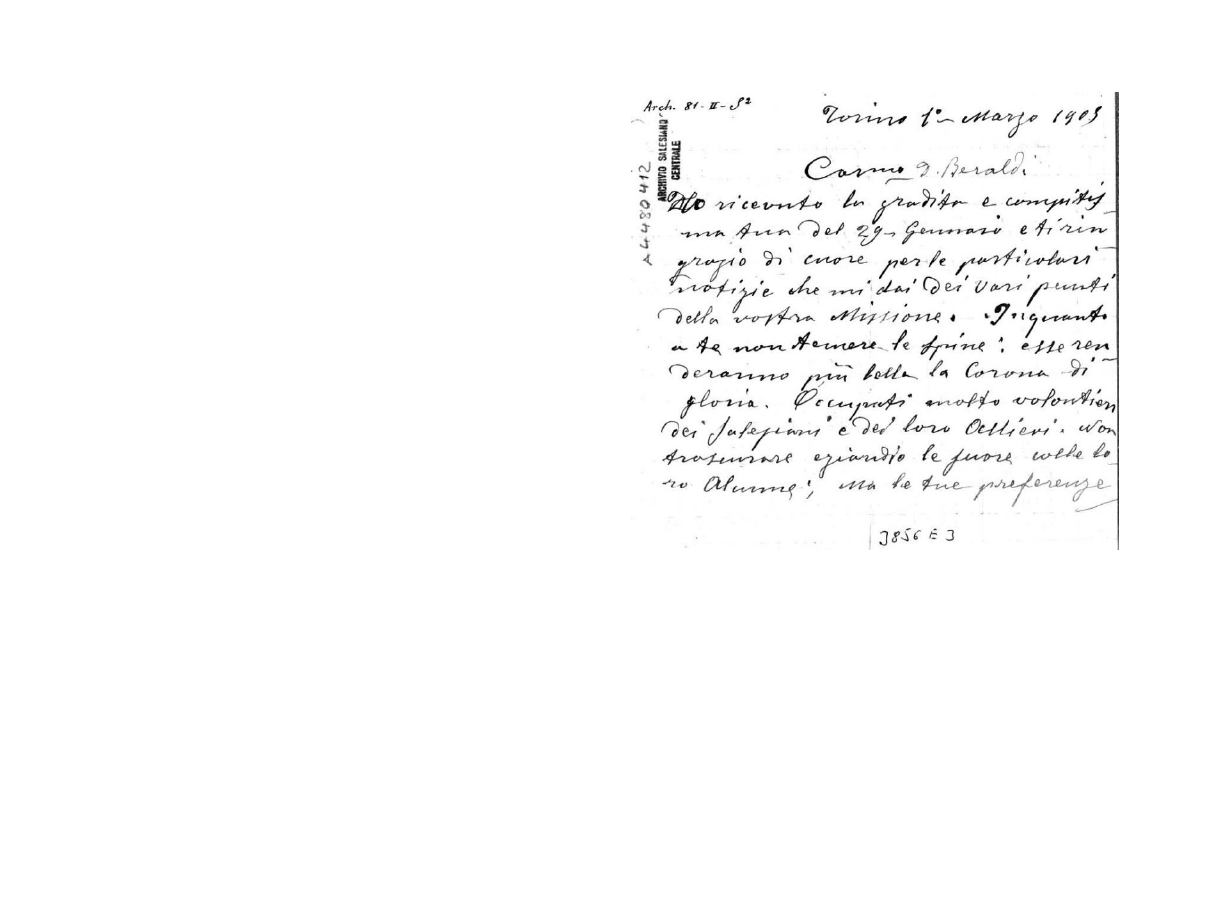 Arch. 81-II-S²
Torino 1º Marzo 1905
ARCHIVIO SALESIANO
CENTRALE
A4480412
Carmo D. Beraldi
Ho ricevuto la gradita e compitis
ma tua del 29 Gennaio e ti rin
grazio di cuore per le particolari
notizie che mi dai dei vari punti
della vostra Missione. In quanto
a te non temere le spine: esse ren
deranno più bella la Corona di
gloria. Occupati molto volontieri
dei Salesiani e dei loro Allievi. Non
trascurare eziandio le suore colle lo
ro Alunne; ma le tue preferenze
3856 E 3